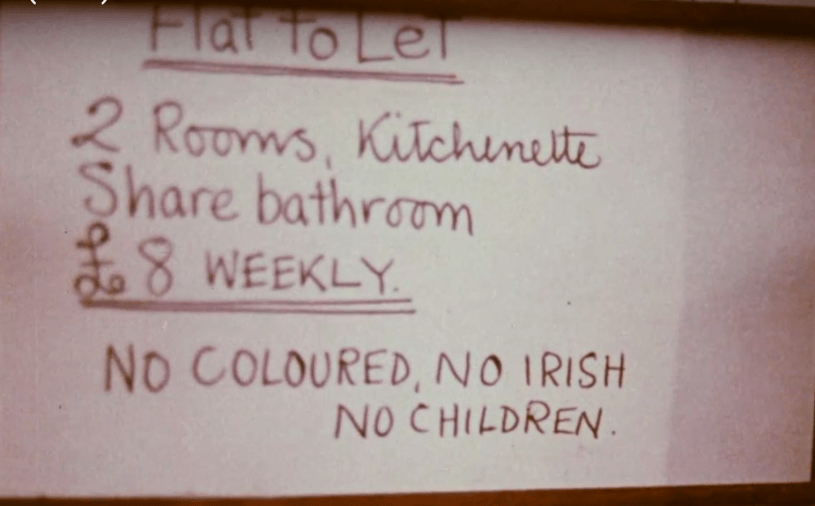 Flat to Let
2 Rooms, Kitchenette
Share bathroom
£8 WEEKLY.
NO COLOURED, NO IRISH
NO CHILDREN.